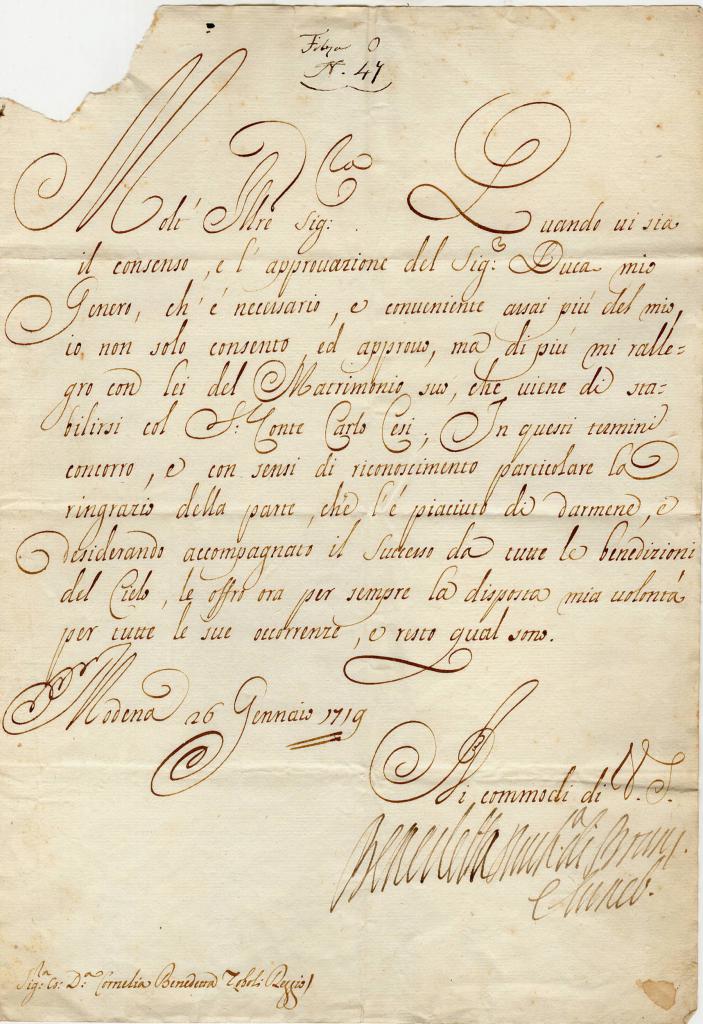 Filza O
N. 47
Molt' Illre Sig.ra Quando ui sia
il consenso, e l'approuazione del Sig.r Duca mio
Genero, ch'è necessario, e conueniente assai più del mio,
io non solo consento, ed approuo, ma di più mi ralle=
gro con lei del Matrimonio suo, che uiene di sta-
bilirsi col S. Conte Carlo Cesi, In questi termini
concorro, e con sensi di riconoscimento particolare la
ringrazio della parte, che l'è piaciuto di darmene, e
desiderando accompagnato il successo da tutte le benedizioni
del Cielo, le offro ora per sempre la disposta mia uolontà
per tutte le sue occorrenze, e resto qual sono.
Modena 26 Gennaio 1719
Ai commodi di V. S.
Benedetta di Brun.
e Luneb.
Sig.ra Co: D.a Cornelia Benedetta Reggio